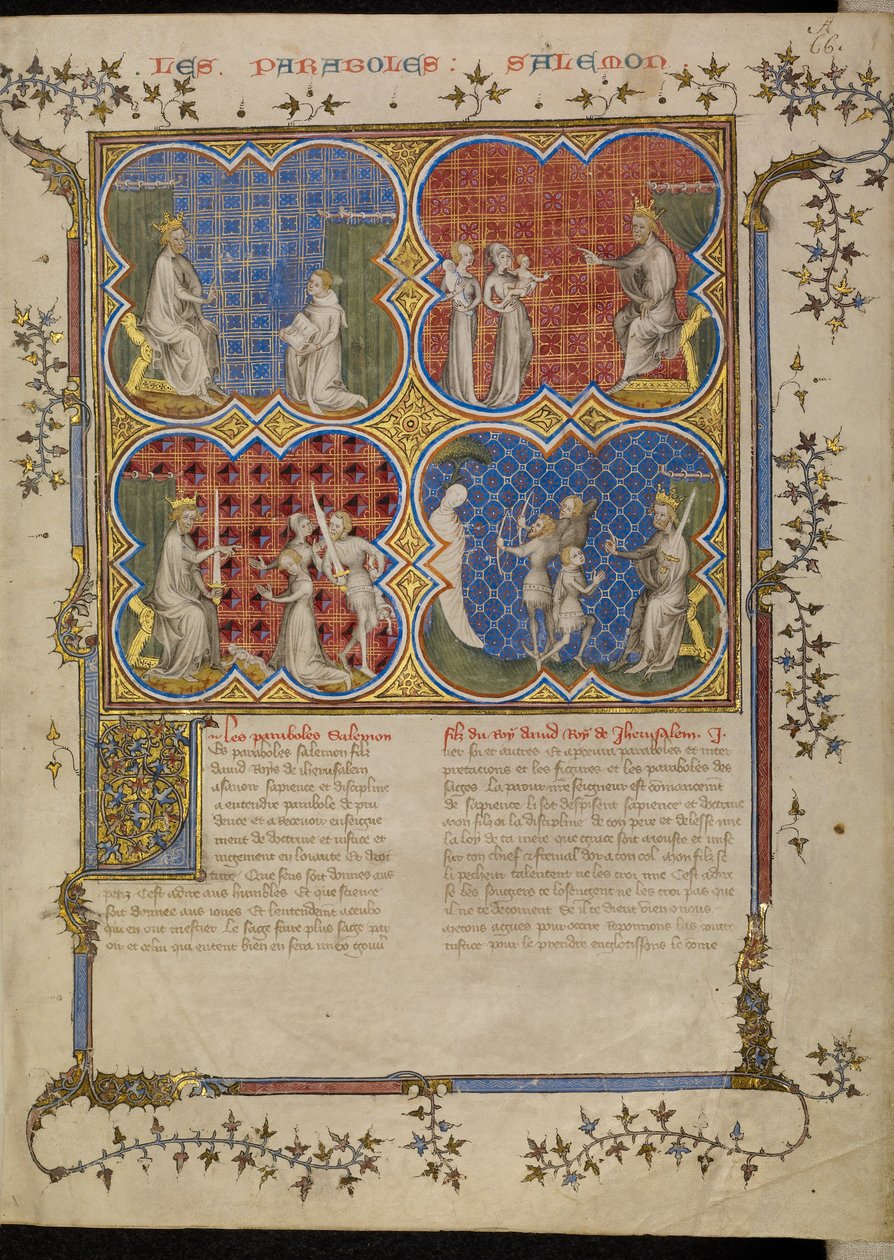 LES. PARABOLES: SALEMON.
66.
Les paraboles Salemon
Es paraboles salemon filz
dauid Roys de iherusalem
asauoir sapience et discipline
a entendre parabole de pru
dence et a receuoir enseigne
ment de doctrine et iustice et
iugement en loiaute Et
Que sens soit donnes aus
petiz Cest adire aus humbles Et que science
soit donnee aus iones Et lentendent
qui en ont mestier Le sage sera plus sage par
oir et celui qui entent bien en sera
filz du Roy dauid Roy de Jherusalem. J.
et autres Et aprenra paraboles et inter
pretacions et les figures et les paraboles des
sages La paour nre seigneur est comancemt
de sapience li sot desprisent sapience et doctrine
Mon filz oi la discipline de ton pere et delesse mie
la loy de ta mere que grace soit aiouste et mise
sur ton chief dor a ton col Mon filz se
li pecheur talentent ne les croi mie Cest adire
se les losengent ne les croi pas que
il ne te decoiuent Se il te dient vien o nous
pour occire Reponnons las contre
iustice pour le prendre englotissons le